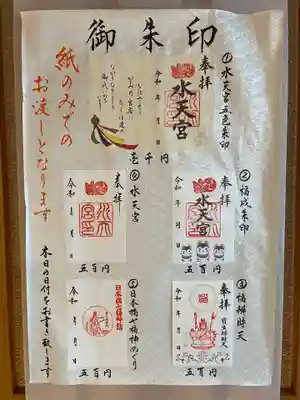 御朱印
①水天宮五色朱印
奉拝
水天宮
令和 年 月 日
壱千円
②福戌朱印
奉拝
水天宮
令和 年 月 日
五百円
③福辨財天
奉拝
令和 年 月 日
五百円
④水天宮
奉拝
令和 年 月 日
五百円
⑤日本橋七福神めぐり
日本橋七福神詣
令和 年 月 日
五百円
紙のみでの
お渡しとなります
本日の日付をお書き致します